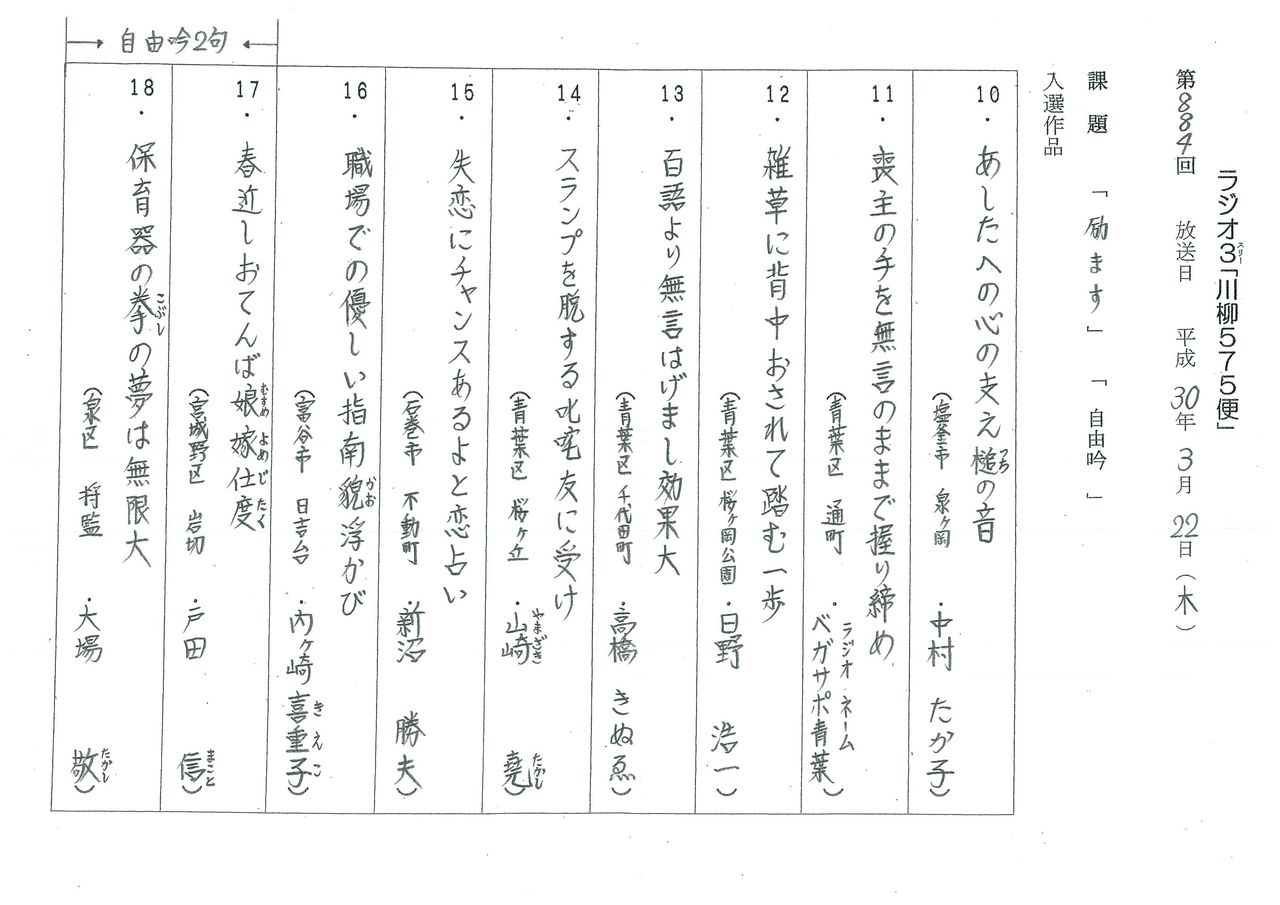 ラジオ3「川柳575便」
スリー
第884回 放送日 平成30年3月22日(木)
課題 「励ます」 「自由吟」
入選作品
10・あしたへの心の支え槌の音
つち
(塩釜市 泉ヶ岡 ・中村 たか子)
11・喪主の手を無言のままで握り締め
ラジオネーム
(青葉区 通町 ・ベガサポ青葉)
12・雑草に背中おされて踏む一歩
(青葉区 桜ヶ岡公園 ・日野 浩一)
13・百語より無言はげまし効果大
(青葉区 千代田町 ・高橋 きぬゑ)
14・スランプを脱する叱咤友に受け
(青葉区 桜ヶ丘 ・山崎 堯)
やまざき たかし
15・失恋にチャンスあるよと恋占い
(石巻市 不動町 ・新沼 勝夫)
16・職場での優しい指南貌浮かび
かお
(富谷市 日吉台 ・内ヶ崎喜重子)
きえこ
自由吟2句
17・春近しおてんば娘嫁仕度
むすめ よめじたく
(宮城野区 岩切 ・戸田 信)
まこと
18・保育器の拳の夢は無限大
こぶし
(泉区 将監 ・大場 敬)
たかし